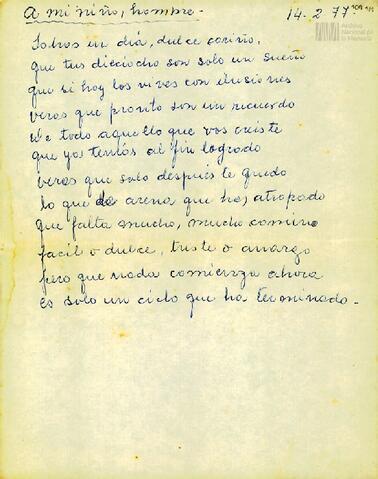 A mi niño, hombre.-
14-2-77
Archivo Nacional de la Memoria
Sabras un día, dulce cariño,
que tus dieciocho son solo un sueño
que si hoy los vives con ilusiones
veras que pronto son un recuerdo
de todo aquello que vos creiste
que ya tenías al fin logrado
veras que solo después te quedo
lo que de arena que has atrapado
que falta mucho, mucho camino
facil o dulce, triste o amargo
pero que nada comienza ahora
es solo un ciclo que ha terminado.-